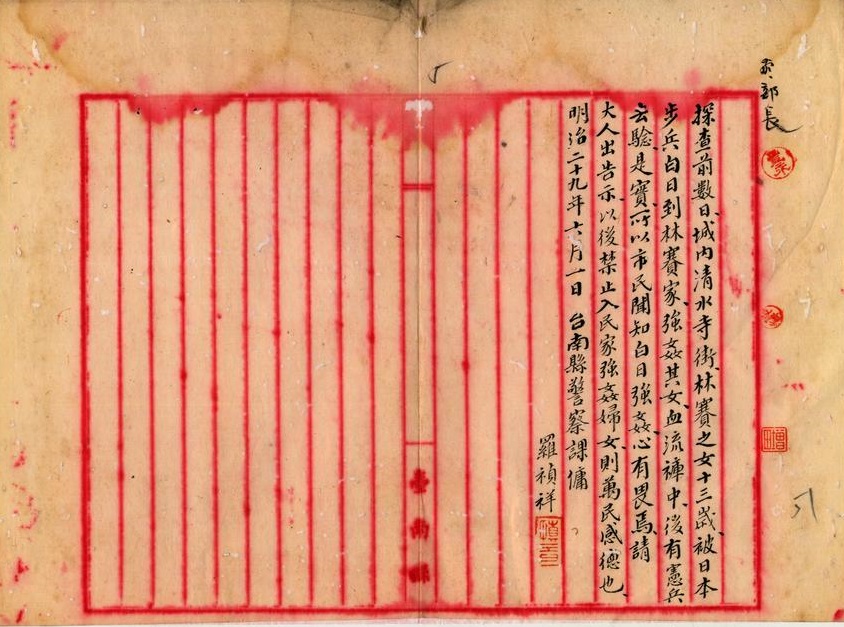 部長
探查前數日、城內清水寺街、林賽之女十三歲、被日本
步兵白日到林賽家、強姦其女、血流褲中、後有憲兵
去驗、是實、所以市民聞知白日強姦、心有畏焉、請
大人出告示、以後禁止入民家強姦婦女、則萬民感德也、
明治二十九年六月一日 台南縣警察課傭
羅禎祥
臺南縣